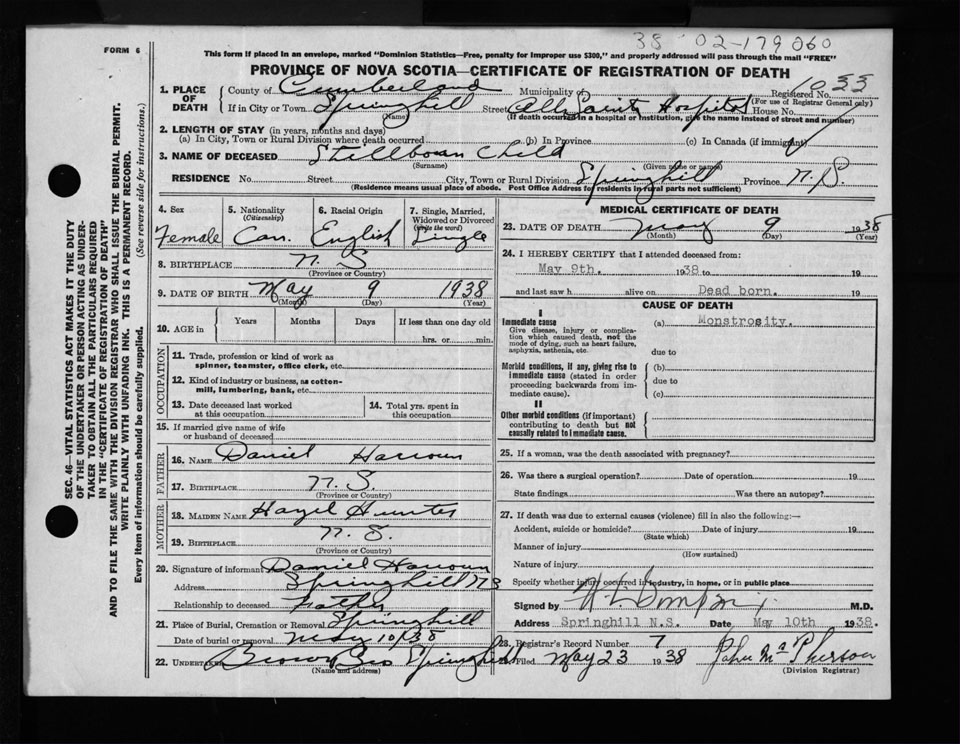 38 02-179060
FORM 6
This form if placed in an envelope, marked "Dominion Statistics—Free, penalty for improper use $300," and properly addressed will pass through the mail "FREE"
PROVINCE OF NOVA SCOTIA—CERTIFICATE OF REGISTRATION OF DEATH
1. PLACE OF DEATH
County of Cumberland Municipality of Registered No. 1033
(For use of Registrar General only)
If in City or Town Springhill Street All Saints Hospital House No.
(Name) (If death occurred in a hospital or institution, give the name instead of street and number)
2. LENGTH OF STAY (in years, months and days)
(a) In City, Town or Rural Division where death occurred (b) In Province (c) In Canada (if immigrant)
3. NAME OF DECEASED Stillborn Child
(Surname) (Given name or names)
RESIDENCE No. Street City, Town or Rural Division Springhill Province N.S.
(Residence means usual place of abode. Post Office Address for residents in rural parts not sufficient)
4. Sex Female
5. Nationality (Citizenship) Can.
6. Racial Origin English
7. Single, Married, Widowed or Divorced (write the word) Single
8. BIRTHPLACE N. S
(Province or Country)
9. DATE OF BIRTH May 9 1938
(Month) (Day) (Year)
10. AGE in Years Months Days If less than one day old
hrs. or min.
OCCUPATION
11. Trade, profession or kind of work as spinner, teamster, office clerk, etc.
12. Kind of industry or business, as cotton-mill, lumbering, bank, etc.
13. Date deceased last worked at this occupation
14. Total yrs. spent in this occupation
15. If married give name of wife or husband of deceased
FATHER
16. NAME Daniel Harroun
17. BIRTHPLACE N. S.
(Province or Country)
MOTHER
18. MAIDEN NAME Hazel Hunter
19. BIRTHPLACE N. S.
(Province or Country)
20. Signature of informant Daniel Harroun
Address Springhill NS
Relationship to deceased Father
21. Place of Burial, Cremation or Removal Springhill
Date of burial or removal May 10/38
22. UNDERTAKER Brown Bros Springhill
(Name and address)
MEDICAL CERTIFICATE OF DEATH
23. DATE OF DEATH May 9 1938
(Month) (Day) (Year)
24. I HEREBY CERTIFY that I attended deceased from:
May 9th. 1938 to 19
and last saw h alive on Dead born. 19
CAUSE OF DEATH
I
Immediate cause (a) Monstrosity.
Give disease, injury or complication which caused death, not the mode of dying, such as heart failure, asphyxia, asthenia, etc.
due to
Morbid conditions, if any, giving rise to immediate cause (stated in order proceeding backwards from immediate cause).
(b)
due to
(c)
II
Other morbid conditions (if important) contributing to death but not causally related to immediate cause.
25. If a woman, was the death associated with pregnancy?
26. Was there a surgical operation? Date of operation 19
State findings Was there an autopsy?
27. If death was due to external causes (violence) fill in also the following:—
Accident, suicide or homicide? Date of injury 19
(State which)
Manner of injury
(How sustained)
Nature of injury
Specify whether injury occurred in industry, in home, or in public place
Signed by M.D.
Address Springhill N.S. Date May 10th 1938.
28. Registrar's Record Number 7
Filed May 23 1938 John McPherson
(Division Registrar)
SEC. 46—VITAL STATISTICS ACT MAKES IT THE DUTY
OF THE UNDERTAKER OR PERSON ACTING AS UNDER-
TAKER TO OBTAIN ALL THE PARTICULARS REQUIRED
IN THE "CERTIFICATE OF REGISTRATION OF DEATH"
AND TO FILE THE SAME WITH THE DIVISION REGISTRAR WHO SHALL ISSUE THE BURIAL PERMIT.
WRITE PLAINLY WITH UNFADING INK. THIS IS A PERMANENT RECORD.
Every item of information should be carefully supplied. (See reverse side for instructions.)